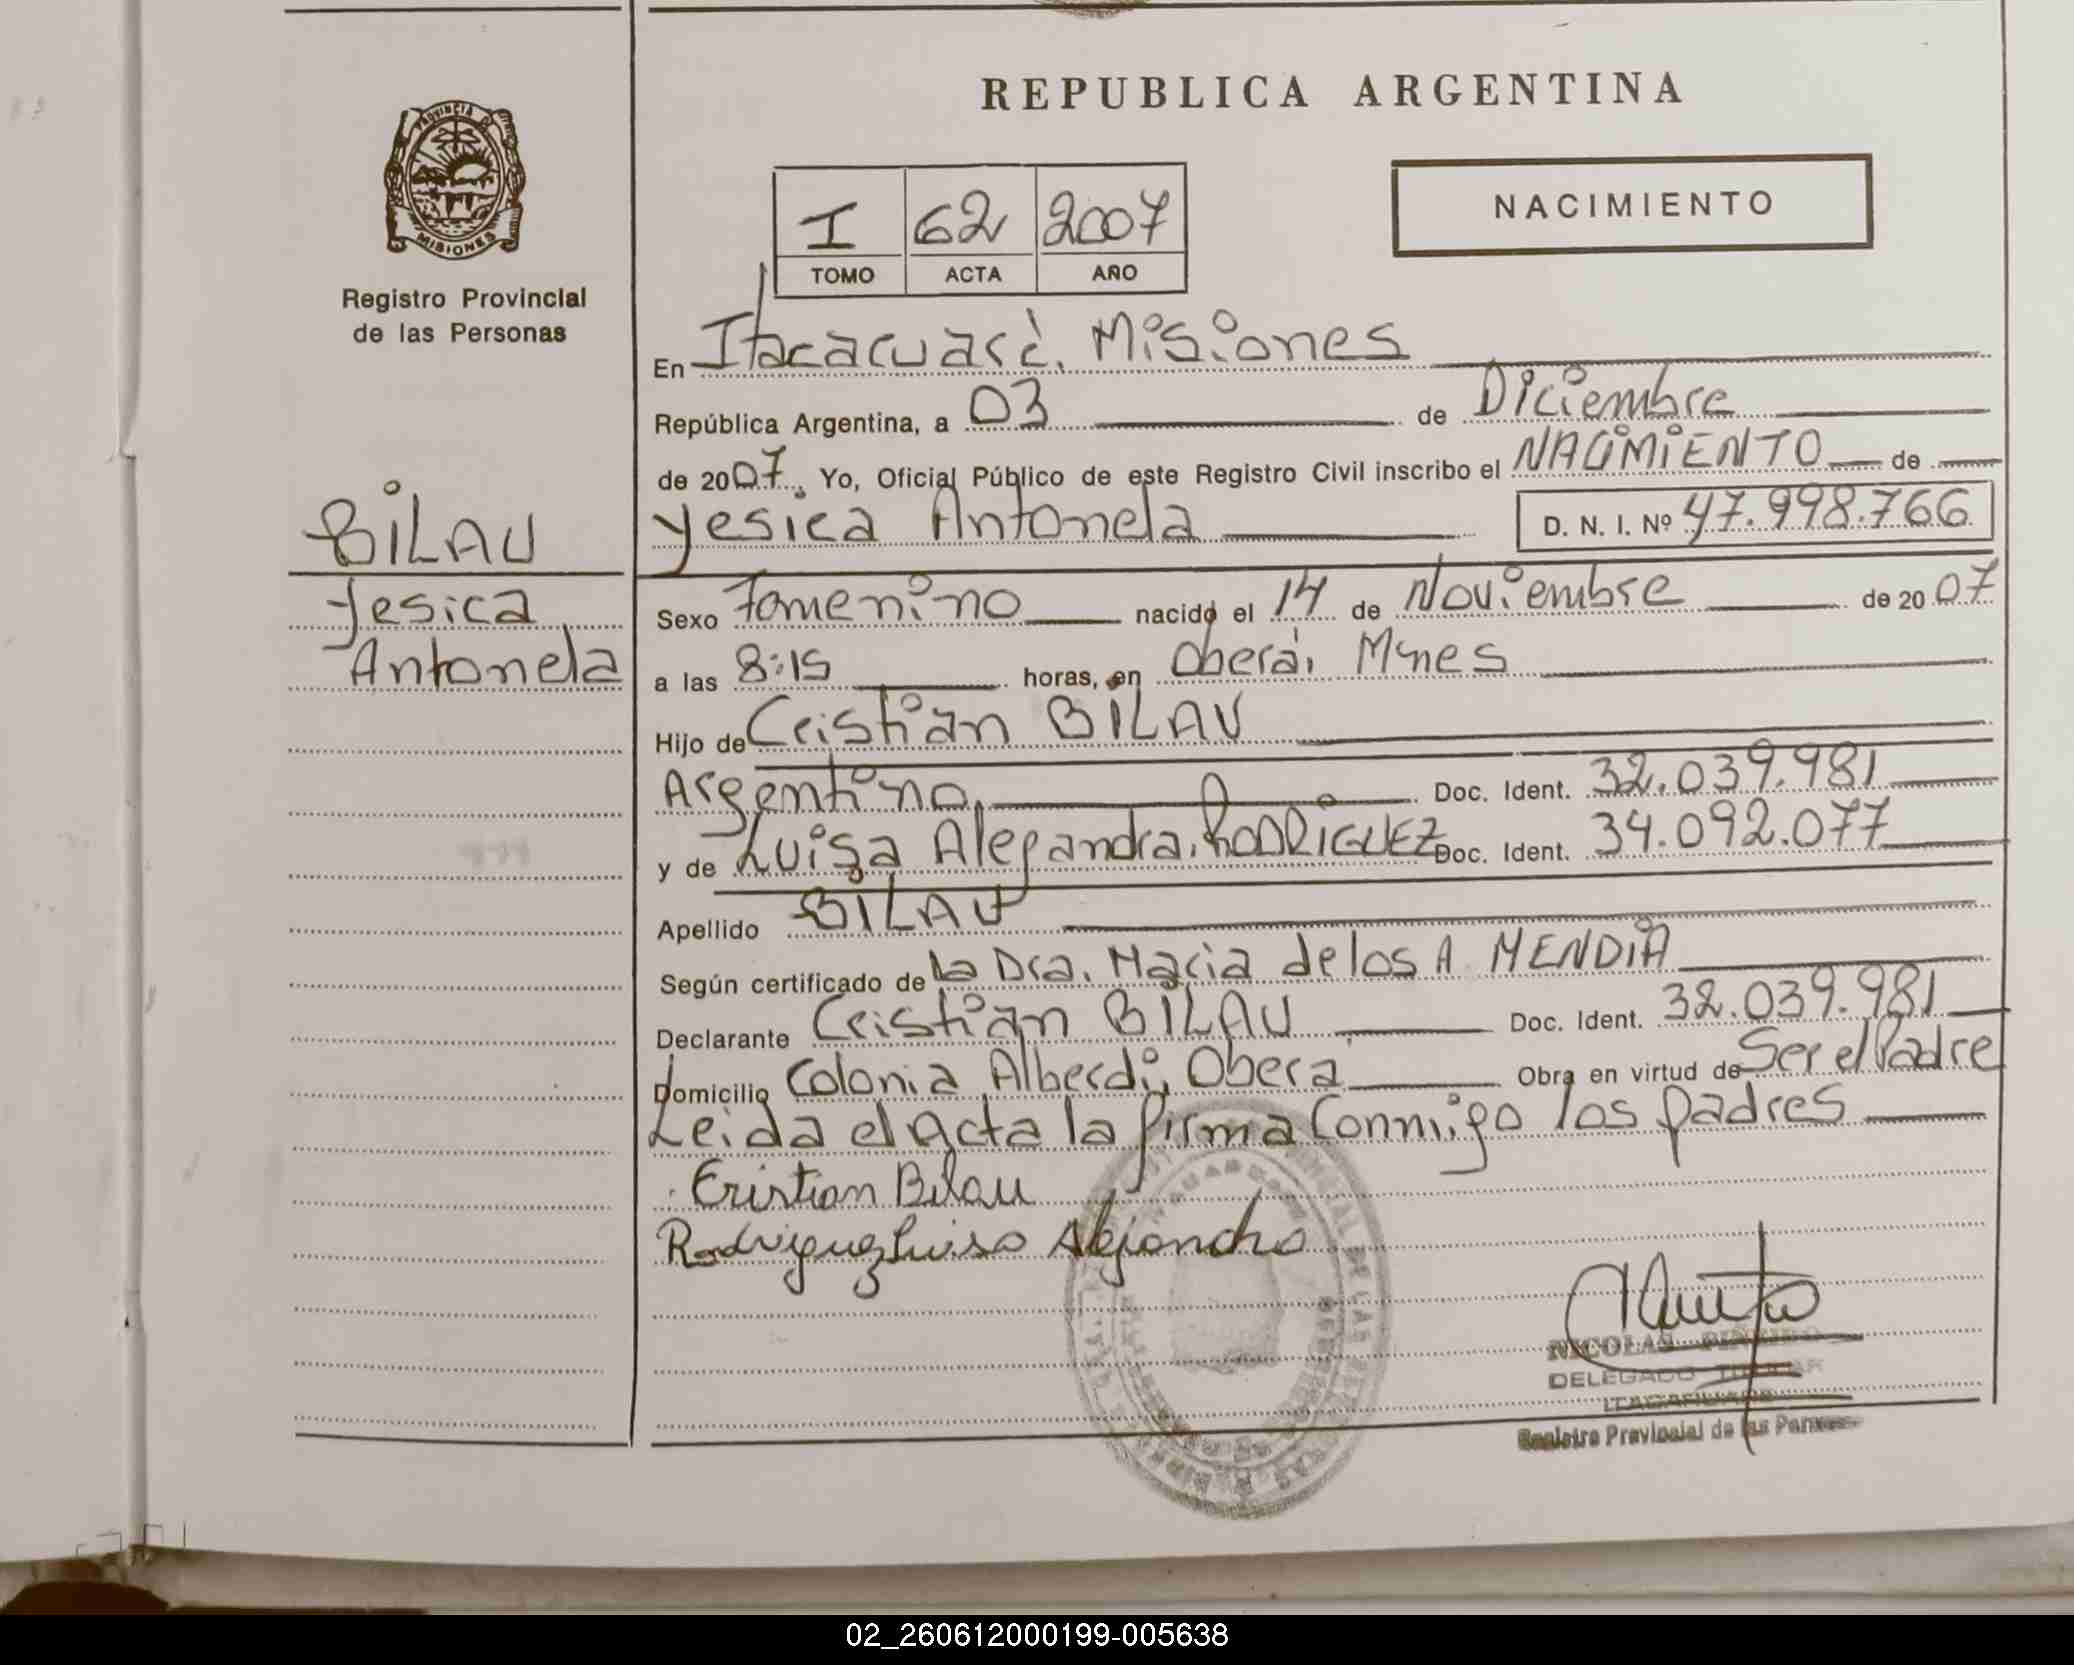 REPUBLICA ARGENTINA
PROVINCIA DE
MISIONES
Registro Provincial
de las Personas
NACIMIENTO
I 62 2007
TOMO ACTA AÑO
En Itacacuaré. Misiones
República Argentina, a 03 de Diciembre
de 2007. Yo, Oficial Público de este Registro Civil inscribo el NACIMIENTO de
Yesica Antonela D. N. I. Nº 47.998.766
BILAU
Yesica
Antonela
Sexo Femenino nacido el 14 de Noviembre de 2007
a las 8:15 horas, en Oberá, Mnes
Hijo de Cristian BILAU
Argentino, Doc. Ident. 32.039.981
y de Luisa Alejandra. RODRIGUEZ Doc. Ident. 34.092.077
Apellido BILAU
Según certificado de la Dra. Maria de los A. MENDIA
Declarante Cristian BILAU Doc. Ident. 32.039.981
Domicilio Colonia Alberdi, Obera Obra en virtud de Ser el Padre
Leida el Acta la firma Conmigo los padres
Cristian Bilau
Rodriguez Luisa Alejandra
NICOLAS
DELEGADO TITULAR
Registro Provincial de las Personas
02_260612000199-005638